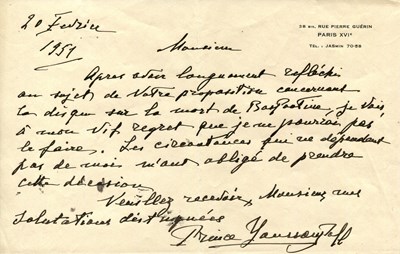 38 BIS, RUE PIERRE GUÉRIN
PARIS XVIᵉ
TÉL. : JASMIN 70-58
20 Fevrier
1951
Monsieur
Apres avoir longuement reflechi
au sujet de votre proposition concernant
le disque sur la mort de Raspoutine, je vois
à mon vif regret que je ne pourrai pas
le faire. Les circonstances qui ne dependent
pas de moi m'ont obligé de prendre
cette décision.
Veuillez recevoir, Monsieur mes
salutations distinguées
Prince Youssoupoff